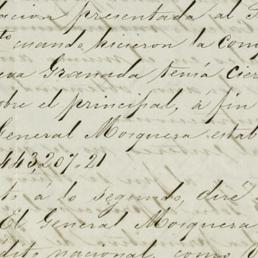 acion presentada al
to cuando hicieron la com
eva Granada tenia cier
obre el principal, á fin
General Mosquera estab
443,207.21
to á lo segundo, diré
El General Mosquera
édito nacional, como